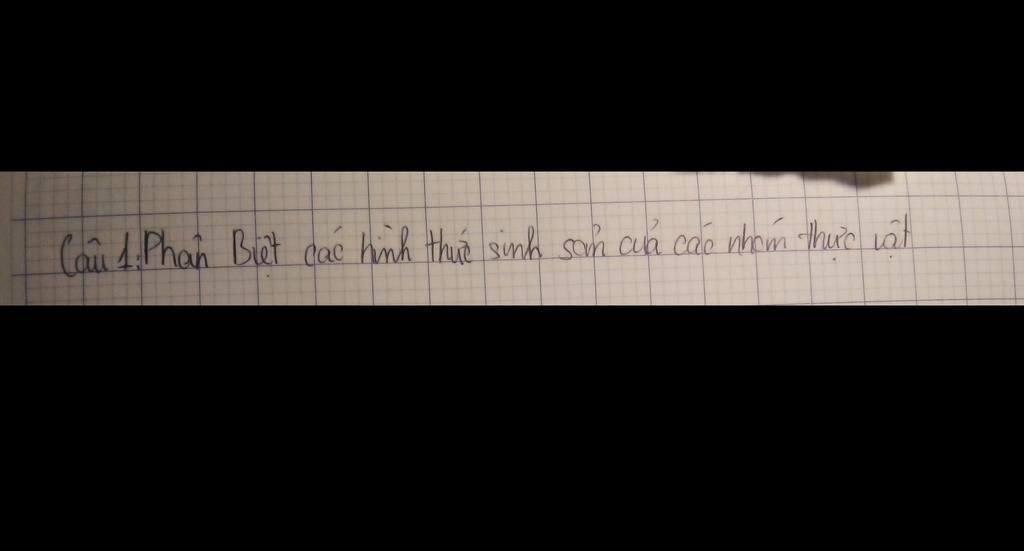 Câu 1: Phân Biệt các hình thức sinh sản của các nhóm thực vật